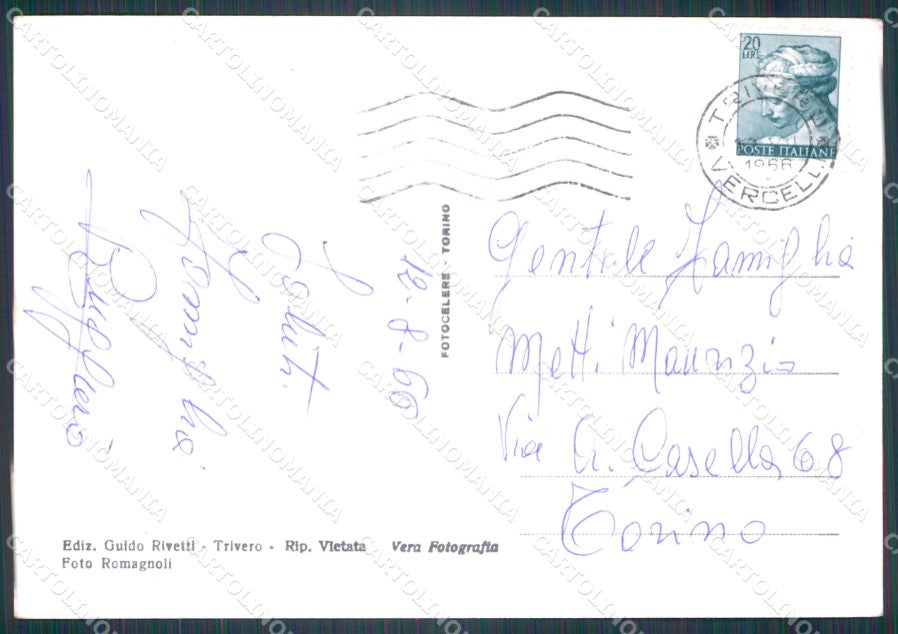 12-8-66
Saluti
Famiglia
20
LIRE
POSTE ITALIANE
TRIVERO
1966
VERCELLI
FOTOCELERE - TORINO
Gentile Famiglia
Metti Maurizio
Via A. Casella 68
Torino
Ediz. Guido Rivetti - Trivero - Rip. Vietata Vera Fotografia
Foto Romagnoli
CARTOLINOMANIA